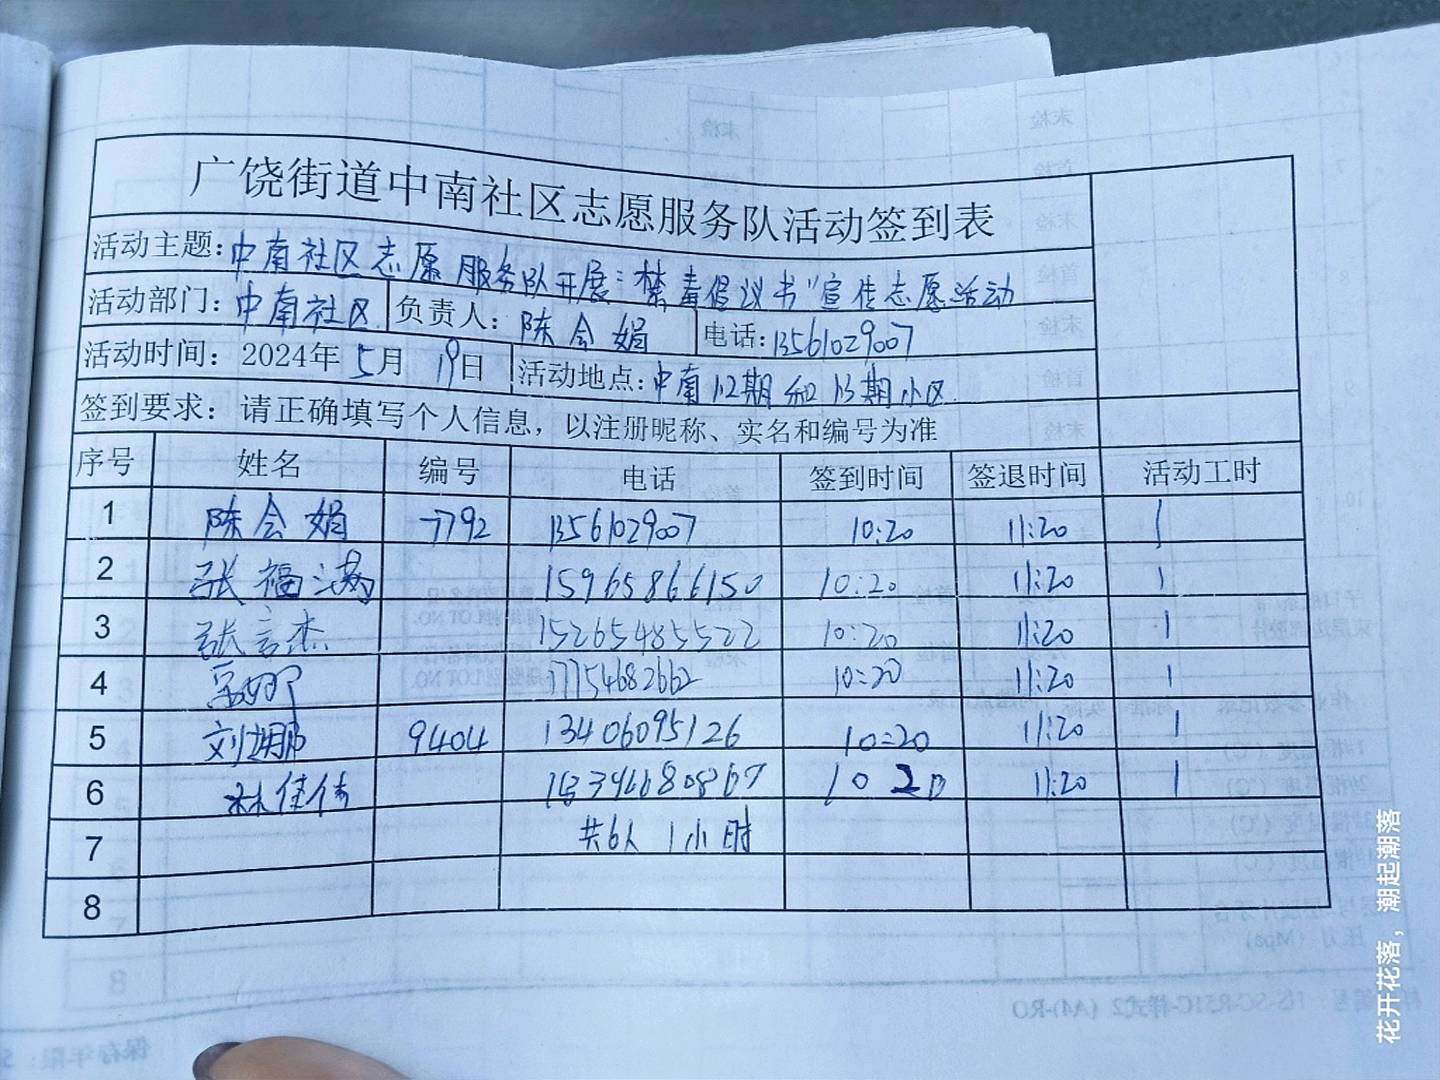 广饶街道中南社区志愿服务队活动签到表
活动主题：中南社区志愿服务队开展"禁毒倡议书"宣传志愿活动
活动部门：中南社区 负责人：陈会娟 电话：13561029007
活动时间：2024年5月19日 活动地点：中南12期和13期小区
签到要求：请正确填写个人信息，以注册昵称、实名和编号为准
序号 姓名 编号 电话 签到时间 签退时间 活动工时
1 陈会娟 7792 13561029007 10:20 11:20 1
2 张福满 15965866150 10:20 11:20 1
3 张言杰 15265485522 10:20 11:20 1
4 17754682662 10:20 11:20 1
5 刘娜 9404 13406095126 10:20 11:20 1
6 林佳伟 10 20 11:20 1
7 共6人 1小时
8
花开花落，潮起潮落